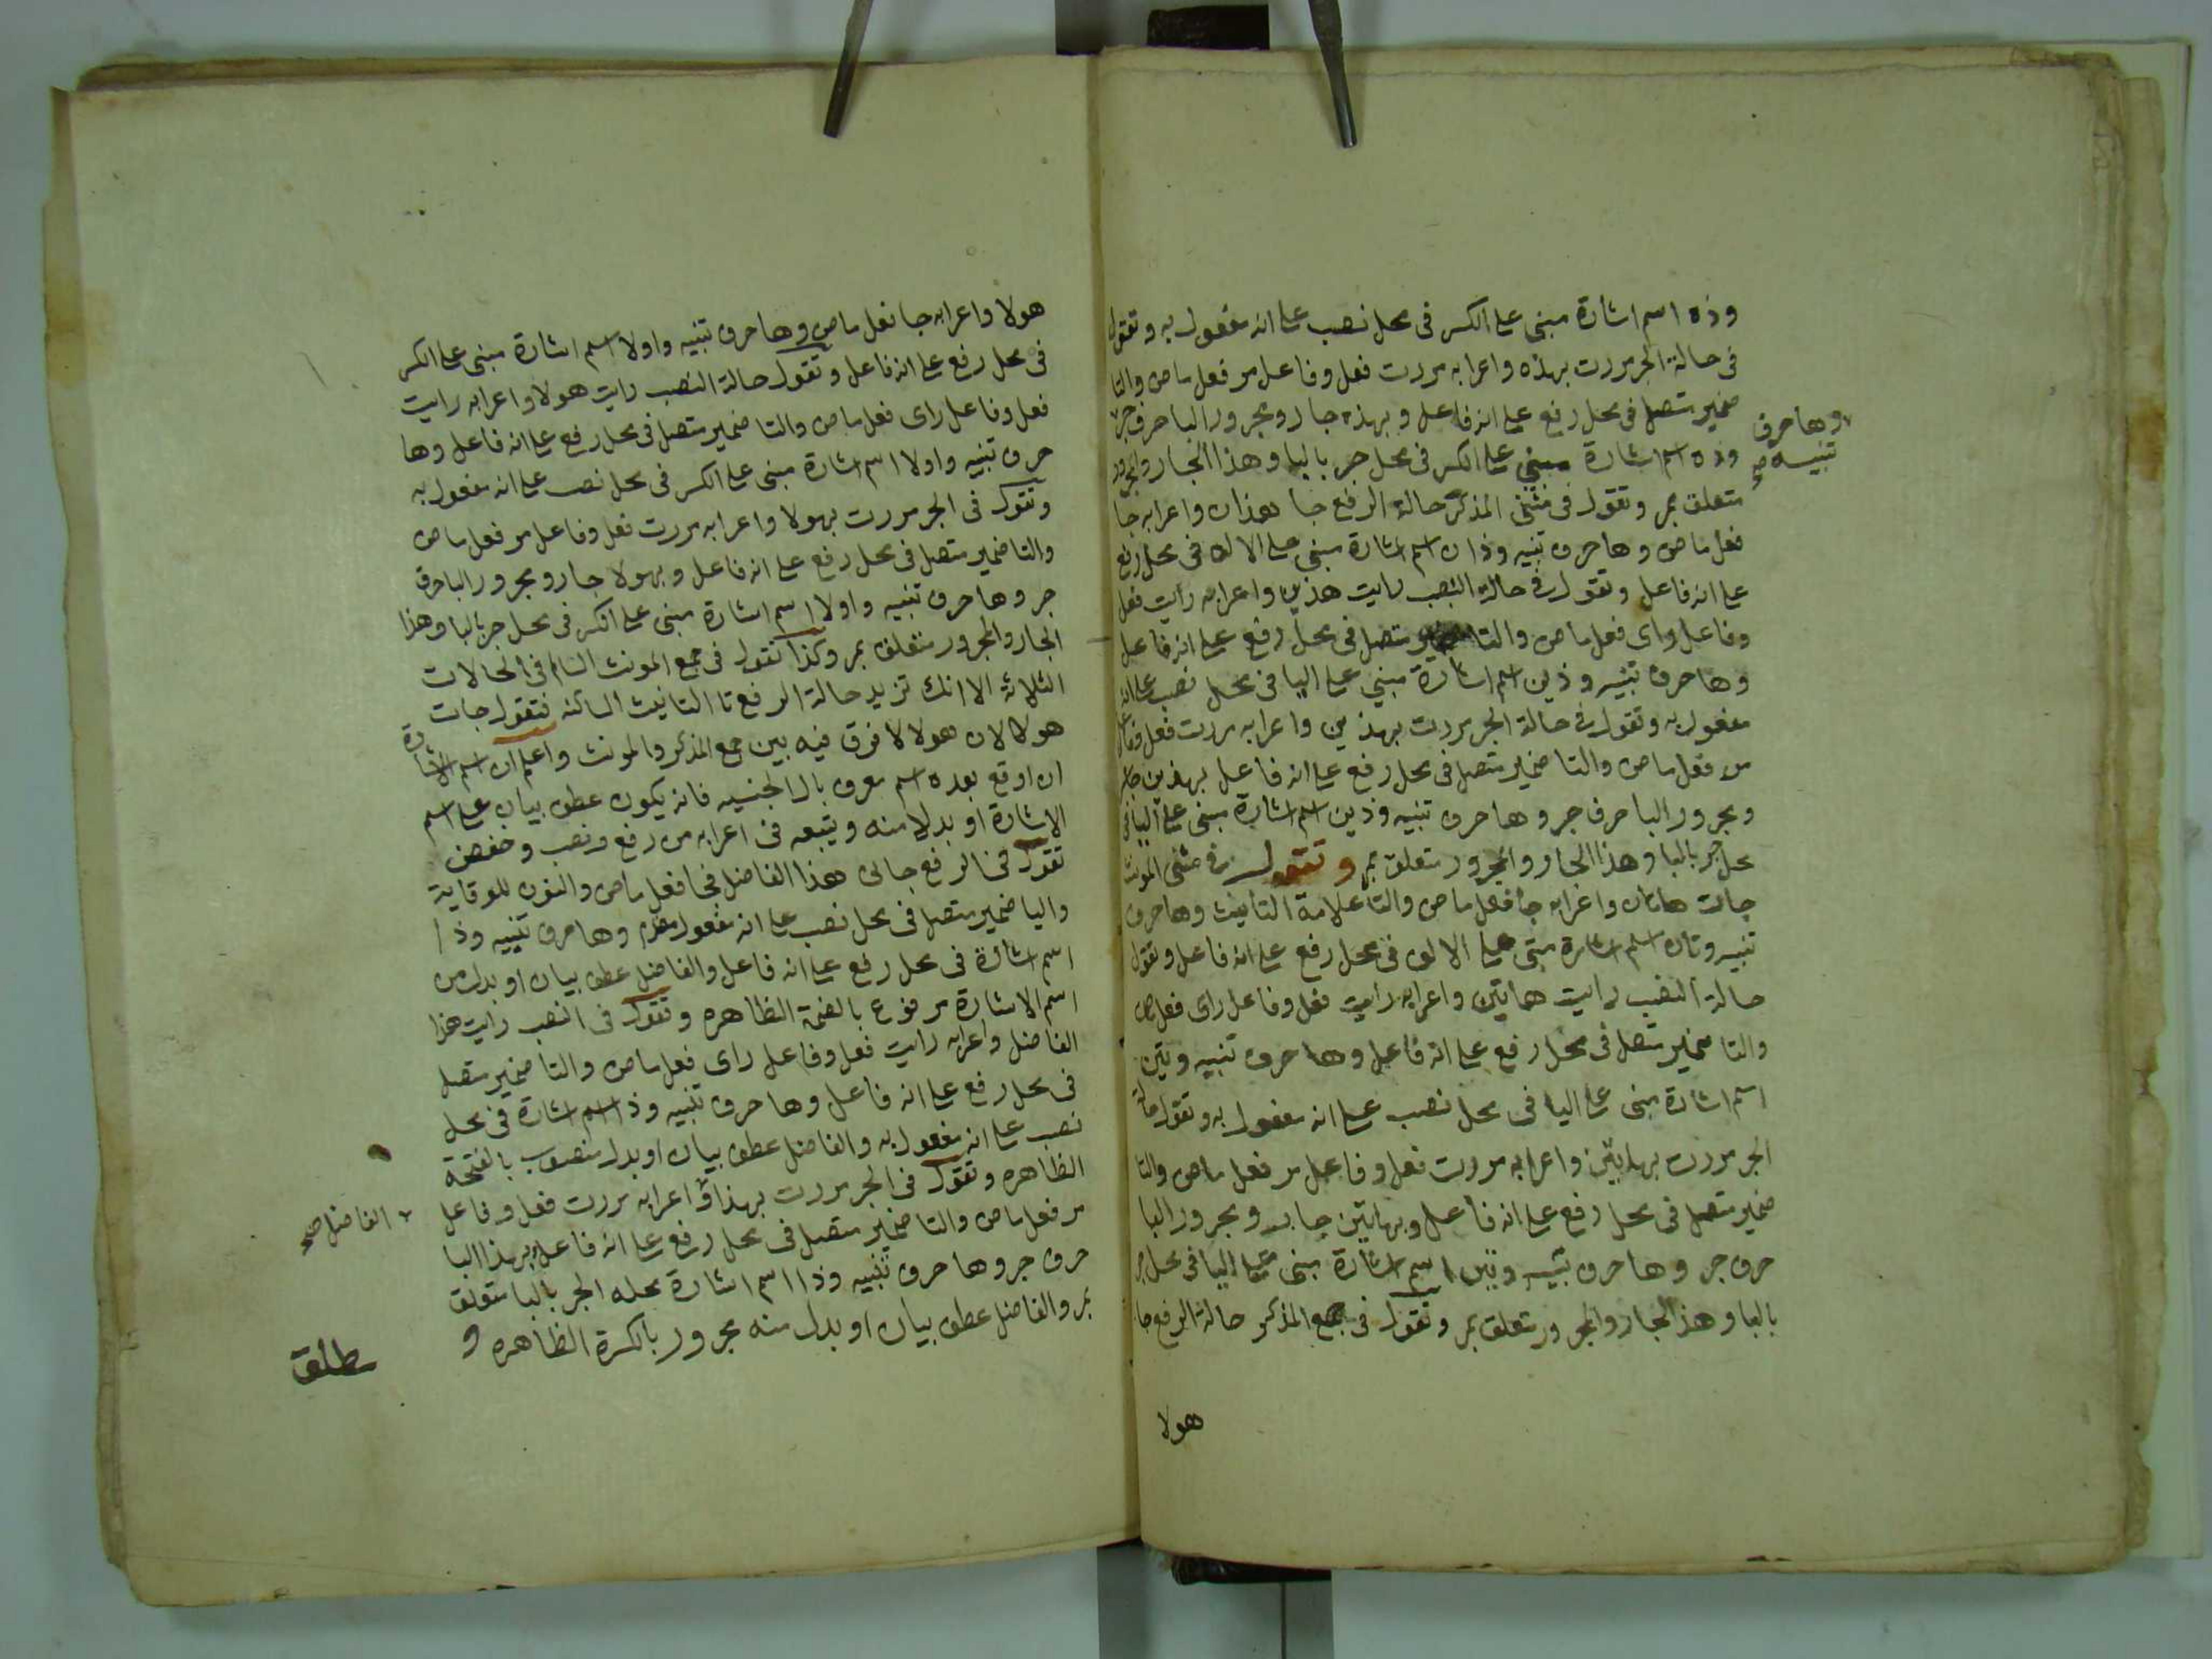 وذه اسم اشارة مبنى على الكسر فى محل نصب على انه مفعول به وتقول
فى حالة الجر مررت بهذه واعرابه مررت فعل وفاعل مر فعل ماض والتا
ضمير متصل فى محل رفع على انه فاعل وبهذه جار ومجرور البا حرف جر
وها حرف
تنبيه صح
وذه اسم اشارة مبنى على الكسر فى محل جر بالبا وهذا الجار والمجرور
متعلق بمر وتقول فى مثنى المذكر حالة الرفع جا هذان واعرابه جا
فعل ماض وها حرف تنبيه وذان اسم اشارة مبنى على الالف فى محل رفع
على انه فاعل وتقول فى حالة النصب رايت هذين واعرابه رايت فعل
وفاعل راى فعل ماض والتا ضمير متصل فى محل رفع على انه فاعل
وها حرف تنبيه وذين اسم اشارة مبنى على اليا فى محل نصب على انه
مفعول به وتقول فى حالة الجر مررت بهذين واعرابه مررت فعل وفاعل
مر فعل ماض والتا ضمير متصل فى محل رفع على انه فاعل بهذين جار
ومجرور البا حرف جر وها حرف تنبيه وذين اسم اشارة مبنى على اليا فى
محل جر بالبا وهذا الجار والمجرور متعلق بمر وتقول فى مثنى المونث
جات هاتان واعرابه جا فعل ماض والتا علامة التانيث وها حرف
تنبيه وتان اسم اشارة مبنى على الالف فى محل رفع على انه فاعل وتقول
حالة النصب رايت هاتين واعرابه رايت فعل وفاعل راى فعل ماض
والتا ضمير متصل فى محل رفع على انه فاعل وها حرف تنبيه وتين
اسم اشارة مبنى على اليا فى محل نصب على انه مفعول به وتقول حالة
الجر مررت بهاتين واعرابه مررت فعل وفاعل مر فعل ماض والتا
ضمير متصل فى محل رفع على انه فاعل وبهاتين جار ومجرور البا
حرف جر وها حرف تنبيه وتين اسم اشارة مبنى على اليا فى محل جر
بالبا وهذا الجار والمجرور متعلق بمر وتقول فى جمع المذكر حالة الرفع جا
هولا
هولا واعرابه جا فعل ماض وها حرف تنبيه واولا اسم اشارة مبنى على الكسر
فى محل رفع على انه فاعل وتقول حالة النصب رايت هولا واعرابه رايت
فعل وفاعل راى فعل ماض والتا ضمير متصل فى محل رفع على انه فاعل وها
حرف تنبيه واولا اسم اشارة مبنى على الكسر فى محل نصب على انه مفعول به
وتقول فى الجر مررت بهولا واعرابه مررت فعل وفاعل مر فعل ماض
والتا ضمير متصل فى محل رفع على انه فاعل وبهولا جار ومجرور البا حرف
جر وها حرف تنبيه واولا اسم اشارة مبنى على الكسر فى محل جر بالبا وهذا
الجار والمجرور متعلق بمر وكذا تقول فى جمع المونث السالم فى الحالات
الثلاثة الا انك تزيد حالة الرفع تا التانيث الساكنه فتقول جات
هولا لان هولا لا فرق فيه بين جمع المذكر والمونث واعلم ان اسم الاشارة
ان اوقع بعده اسم معرف بال الجنسيه فانه يكون عطف بيان على اسم
الاشارة او بدلا منه ويتبعه فى اعرابه من رفع ونصب وخفض
تقول فى الرفع جانى هذا الفاضل فجا فعل ماض والنون للوقاية
واليا ضمير متصل فى محل نصب على انه مفعول مقدم وها حرف تنبيه وذا
اسم اشارة فى محل رفع على انه فاعل والفاضل عطف بيان او بدل من
اسم الاشارة مرفوع بالضمة الظاهره وتقول فى النصب رايت هذا
الفاضل واعرابه رايت فعل وفاعل راى فعل ماض والتا ضمير متصل
فى محل رفع على انه فاعل وها حرف تنبيه وذا اسم اشارة فى محل
نصب على انه مفعول به والفاضل عطف بيان او بدل منصوب بالفتحة
الظاهره وتقول فى الجر مررت بهذا واعرابه مررت فعل وفاعل
الفاضل صح
مر فعل ماض والتا ضمير متصل فى محل رفع على انه فاعل وبهذا البا
حرف جر وها حرف تنبيه وذا اسم اشارة محله الجر بالبا متعلق
بمر والفاضل عطف بيان او بدل منه مجرور بالكسرة الظاهره و